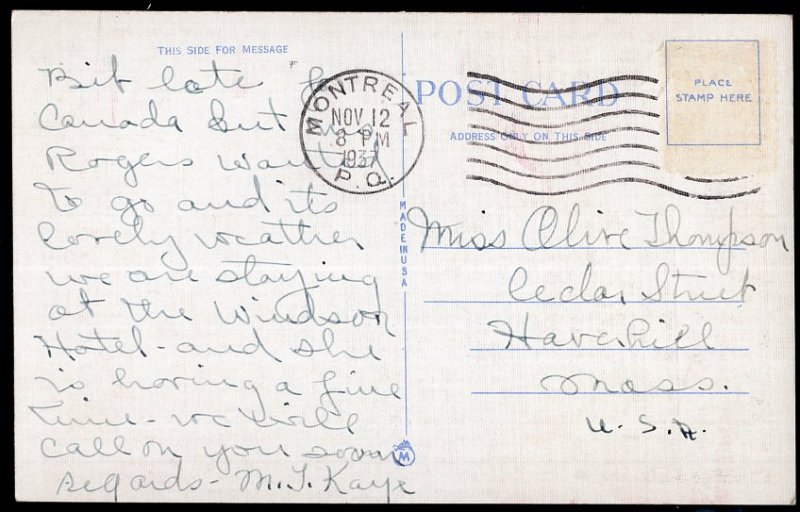 THIS SIDE FOR MESSAGE
Bit late for
Canada but
Rogers wanted
to go and its
lovely weather
we are staying
at the Windsor
Hotel - and she
is having a fine
time - we will
call on you soon
regards - M.J. Kaye
MONTREAL
NOV 12
8 PM
1937
P.Q.
POST CARD
ADDRESS ONLY ON THIS SIDE
PLACE
STAMP HERE
MADE IN USA
M
Miss Olive Thompson
Cedar Street
Haverhill
Mass.
U.S.A.